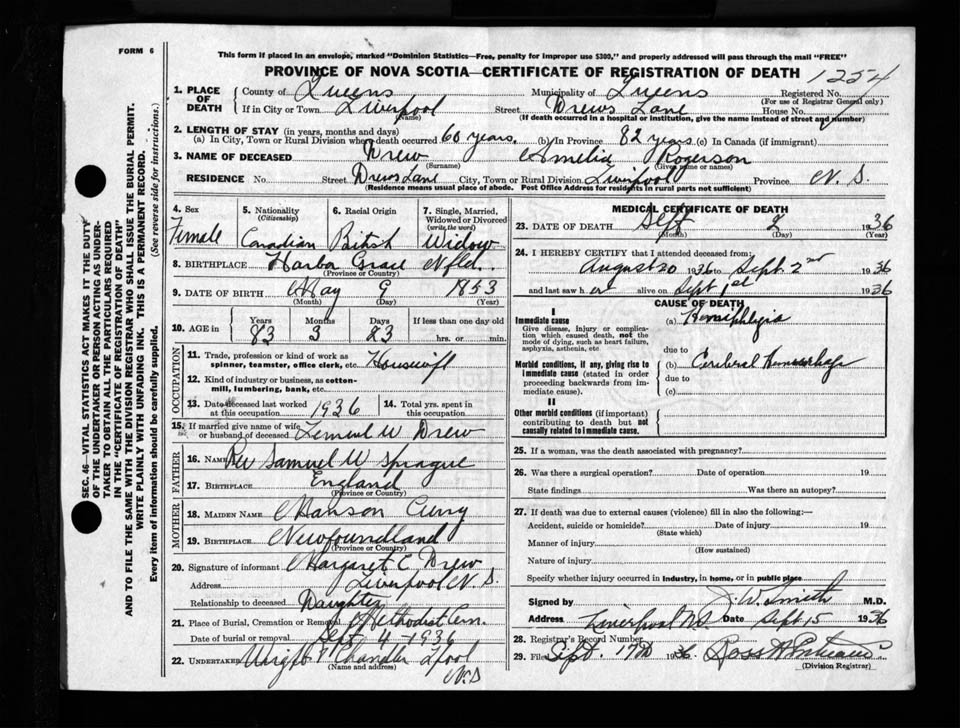 FORM 6
This form if placed in an envelope, marked "Dominion Statistics—Free, penalty for improper use $300," and properly addressed will pass through the mail "FREE"
PROVINCE OF NOVA SCOTIA—CERTIFICATE OF REGISTRATION OF DEATH 1254
1. PLACE OF DEATH County of Queens Municipality of Queens Registered No.
(For use of Registrar General only)
If in City or Town Liverpool Street Drews Lane House No.
(Name) (If death occurred in a hospital or institution, give the name instead of street and number)
2. LENGTH OF STAY (in years, months and days)
(a) In City, Town or Rural Division where death occurred 60 years. (b) In Province 82 years (c) In Canada (if immigrant)
3. NAME OF DECEASED Drew Amelia Rogerson
(Surname) (Given name or names)
RESIDENCE No. Street Drews Lane City, Town or Rural Division Liverpool Province N. S.
(Residence means usual place of abode. Post Office Address for residents in rural parts not sufficient)
4. Sex 5. Nationality (Citizenship) 6. Racial Origin 7. Single, Married, Widowed or Divorced (write the word)
Female Canadian British Widow
8. BIRTHPLACE Harbor Grace Nfld.
(Province or Country)
9. DATE OF BIRTH May 9 1853
(Month) (Day) (Year)
10. AGE in Years Months Days If less than one day old
83 3 23 hrs. or min.
OCCUPATION
11. Trade, profession or kind of work as spinner, teamster, office clerk, etc. Housewife
12. Kind of industry or business, as cotton-mill, lumbering, bank, etc.
13. Date deceased last worked at this occupation 1936 14. Total yrs. spent in this occupation
15. If married give name of wife or husband of deceased Lemuel W Drew
FATHER
16. NAME Rev Samuel W Sprague
17. BIRTHPLACE England
(Province or Country)
MOTHER
18. MAIDEN NAME Manson
19. BIRTHPLACE Newfoundland
(Province or Country)
20. Signature of informant Margaret C. Drew
Address Liverpool N. S.
Relationship to deceased Daughter
21. Place of Burial, Cremation or Removal Methodist Cem.
Date of burial or removal Sept 4 - 1936
22. UNDERTAKER Wright Chandler L'pool
(Name and address) N.S
MEDICAL CERTIFICATE OF DEATH
23. DATE OF DEATH Sept 2 1936
(Month) (Day) (Year)
24. I HEREBY CERTIFY that I attended deceased from:
August 20 1936 to Sept. 2nd 1936
and last saw her alive on Sept 1st 1936
CAUSE OF DEATH
I
Immediate cause (a) Hemiphlegia
Give disease, injury or complication which caused death, not the mode of dying, such as heart failure, asphyxia, asthenia, etc
due to
Morbid conditions, if any, giving rise to immediate cause (stated in order proceeding backwards from immediate cause). (b) Cerebral Hemorrhage
due to
(c)
II
Other morbid conditions (if important) contributing to death but not causally related to immediate cause.
25. If a woman, was the death associated with pregnancy?
26. Was there a surgical operation? Date of operation 19
State findings Was there an autopsy?
27. If death was due to external causes (violence) fill in also the following:—
Accident, suicide or homicide? Date of injury 19
(State which)
Manner of injury
(How sustained)
Nature of injury
Specify whether injury occurred in industry, in home, or in public place
Signed by J. W. Smith M.D.
Address Liverpool NS Date Sept 15 1936
28. Registrar's Record Number
29. Filed Sept. 17th 1936.
(Division Registrar)
SEC. 46—VITAL STATISTICS ACT MAKES IT THE DUTY
OF THE UNDERTAKER OR PERSON ACTING AS UNDER-
TAKER TO OBTAIN ALL THE PARTICULARS REQUIRED
IN THE "CERTIFICATE OF REGISTRATION OF DEATH"
AND TO FILE THE SAME WITH THE DIVISION REGISTRAR WHO SHALL ISSUE THE BURIAL PERMIT.
WRITE PLAINLY WITH UNFADING INK. THIS IS A PERMANENT RECORD.
Every item of information should be carefully supplied. (See reverse side for instructions.)